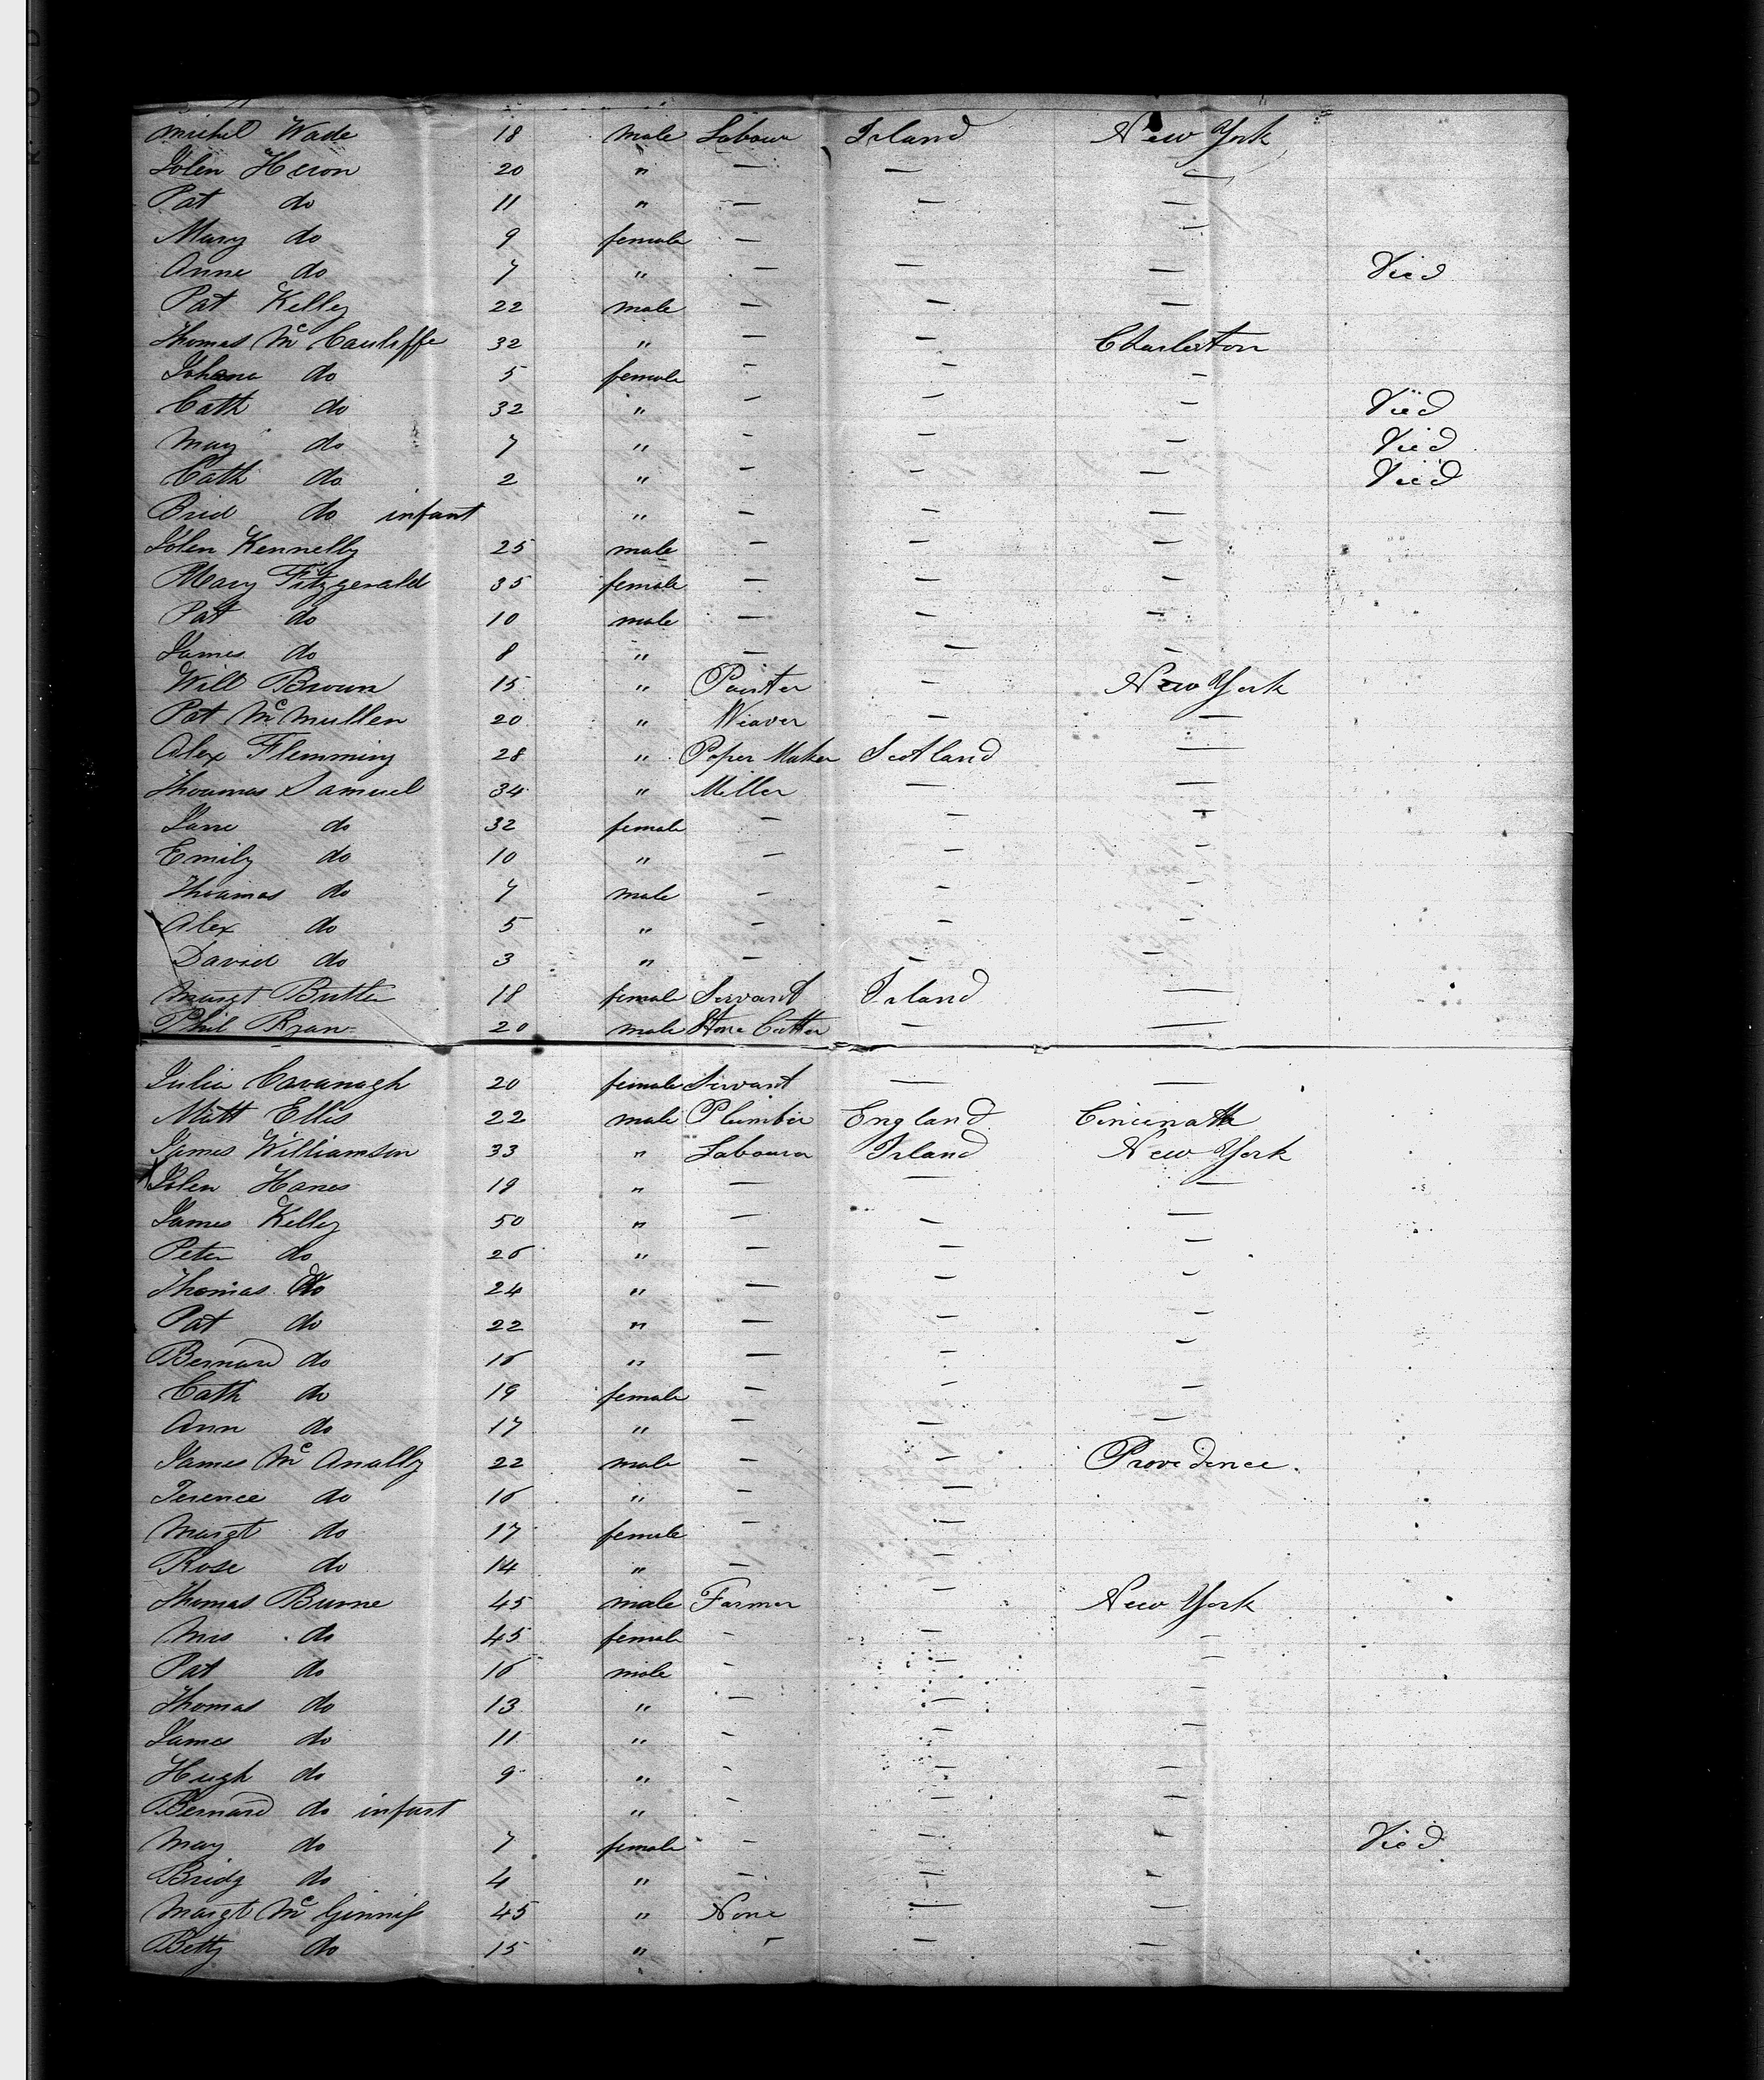 Michel Wade 18 male Labour Irland New York
John Heron 20 " — — —
Pat do 11 " — — —
Mary do 9 female — —
Anne do 7 " — — — Died
Pat Kelly 22 male — — —
Thomas Mc Cauliffe 32 " — — Charleston
Johana do 5 female - - -
Cath do 32 " — — — Died
Mary do 7 " - — — Died
Cath do 2 " — - — Died
Brid do infant " — — —
John Kennelly 25 male — — —
Mary Fitzgerald 35 female — — —
Pat do 10 male — — —
James do 8 " — — —
Will Brown 15 " Painter — New York
Pat Mc Mullen 20 " Weaver — —
Alex Flemming 28 " Paper Maker Scotland —
Thoumas Samuel 34 " Miller — —
Jane do 32 female - — —
Emily do 10 " — — -
Thoumas do 7 male - - -
Alex do 5 " - — -
David do 3 " — — —
Margt Butler 18 female Servant Irland —
Phil Ryan 20 male Stone Cutter — —
Julia Cavanagh 20 female Servant — —
Matt Ellis 22 male Plumber England Cincinatti
James Williamson 33 " Labourer Irland New York
John Hanes 19 " — — —
James Kelly 50 " — — —
Peter do 26 " — — —
Thomas do 24 " — — -
Pat do 22 " — — —
Bernard do 16 " — - -
Cath do 19 female — - —
Ann do 17 " — — —
James Mc Anally 22 male — — Providence
Terence do 16 " — —
Margt do 17 female — —
Rose do 14 " — —
Thomas Burne 45 male Farmer — New York
Mrs do 45 female - — —
Pat do 16 male - — —
Thomas do 13 " — — -
James do 11 " - — —
Hugh do 9 " - — —
Bernard do infant " - — —
Mary do 7 female — — - Died
Bridg do 4 " — — -
Margt Mc Ginniss 45 " None — —
Betty do 15 " - — —